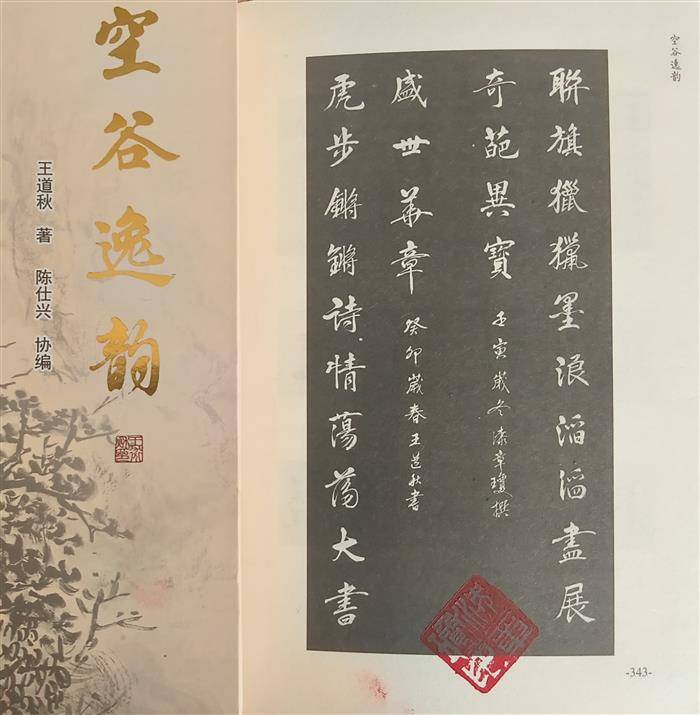 空谷逸韵
王道秋 著 陈仕兴 协编
空谷逸韵
聯旗獵獵墨浪滔滔盡展
奇葩異寶
壬寅歲冬漆章瓊撰
虎步鏘鏘诗情蕩蕩大書
盛世華章
癸卯歲春王道秋書
-343-